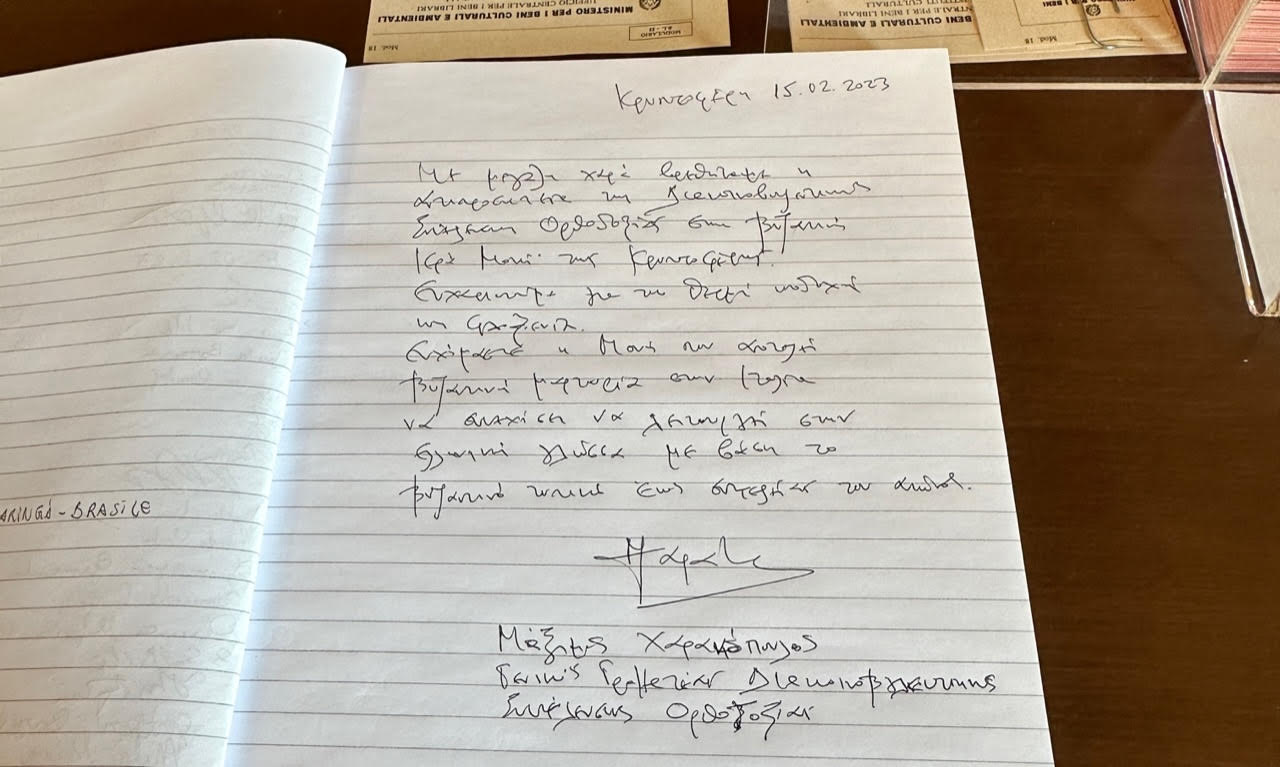 MINISTERO PER I BENI CULTURALI E AMBIENTALI
UFFICIO CENTRALE PER I BENI
MODULARIO
Mod. 18
BENI CULTURALI E AMBIENTALI
Mod. 18
Κρυπτοφέρη 15.02.2023
Με μεγάλη χαρά
της Διακοινοβουλευτικής
Συνέλευσης Ορθοδοξίας στην βυζαντινή
Ιερά Μονή της Κρυπτοφέρης.
Ευχαριστούμε για την θερμή υποδοχή
και φιλοξενία.
Ευχόμαστε η Μονή
βυζαντινή μαρτυρία στην Ιταλία
να συνεχίσει να λειτουργεί στην
ελληνική γλώσσα με βάση το
βυζαντινό τυπικό έως συντελείας του αιώνος.
Μάξιμος Χαρακόπουλος
Γενικός Γραμματέας Διακοινοβουλευτικής
Συνέλευσης Ορθοδοξίας
ARINGÁ - BRASILE